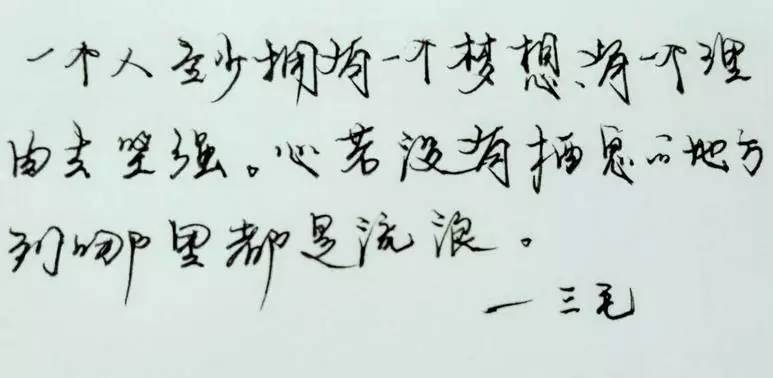 一个人至少拥有一个梦想、有一个理
由去坚强。心若没有栖息的地方
到哪里都是流浪。
一三毛